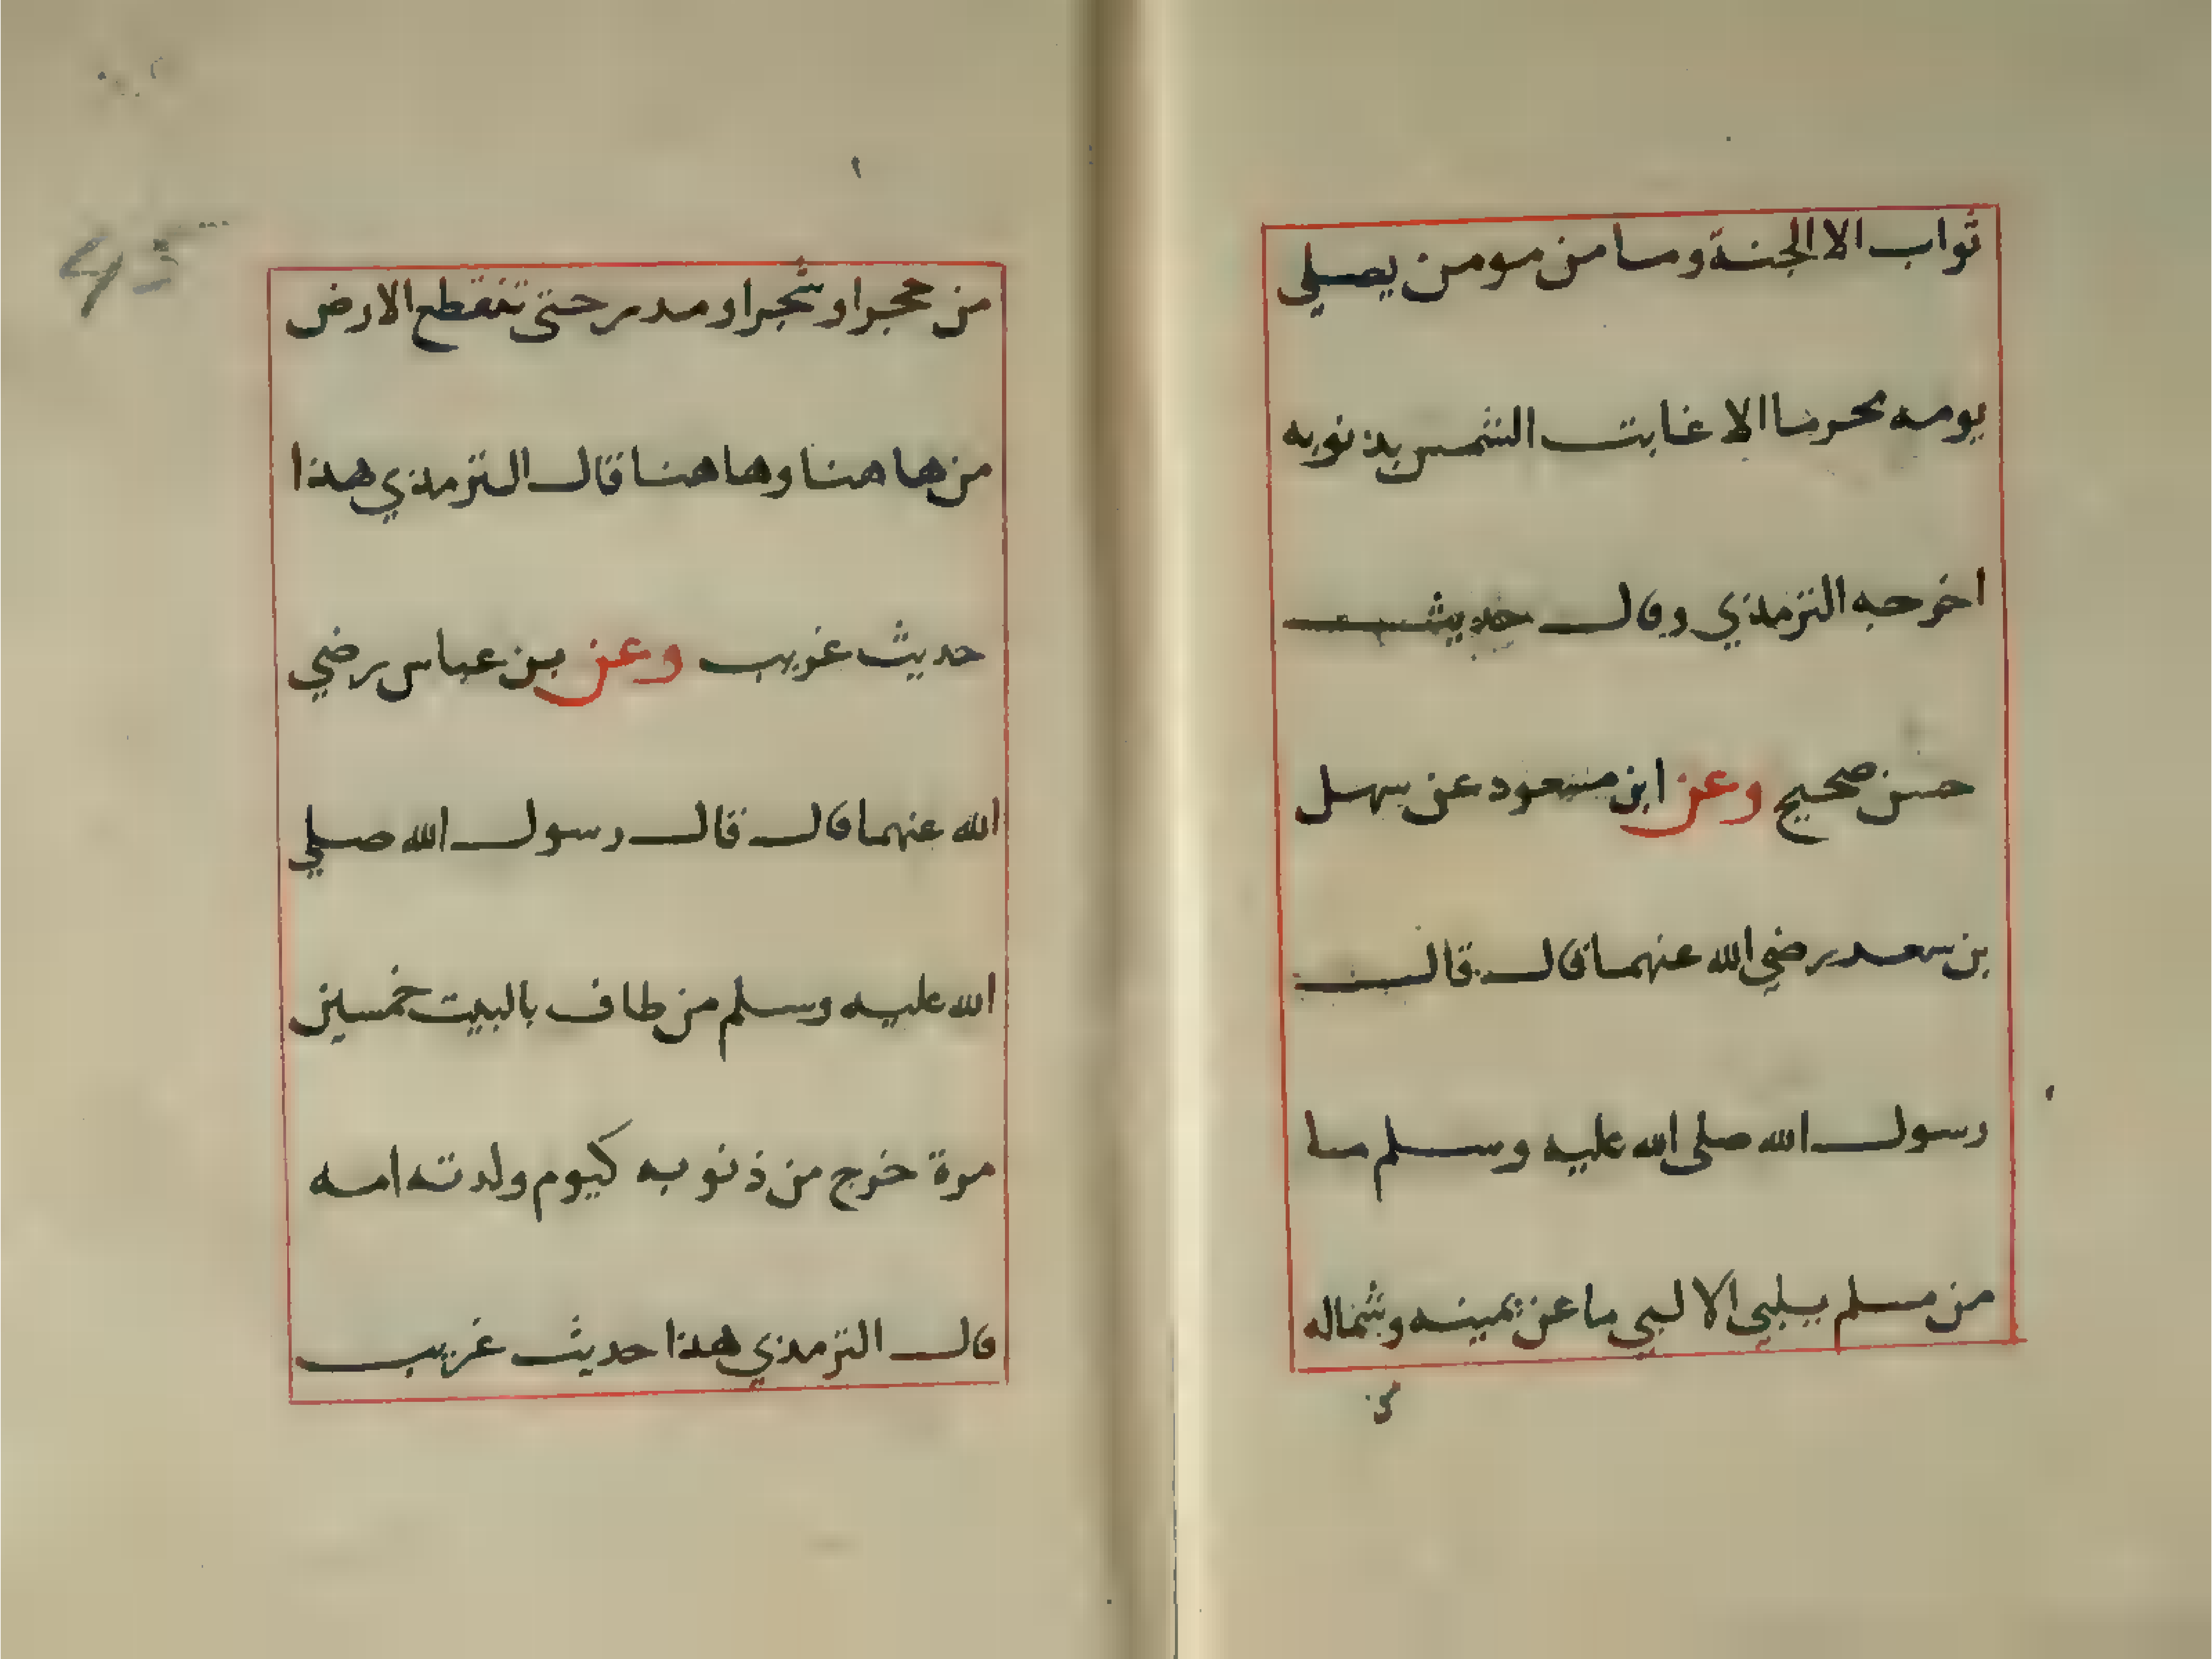 ثواب الا الجنة وما من مومن يصلي
يومه محرما الا غابت الشمس بذنوبه
اخرجه الترمذي وقال حديث
حسن صحيح وعن ابن مسعود عن سهل
بن سعد رضي الله عنهما قال قال
رسول الله صلى الله عليه وسلم ما
من مسلم يلبي الا لبى ما عن يمينه وشماله
من
45
من حجر او شجر او مدر حتى تنقطع الارض
من ها هنا وها هنا قال الترمذي هذا
حديث غريب وعن بن عباس رضي
الله عنهما قال قال رسول الله صلي
الله عليه وسلم من طاف بالبيت خمسين
مرة خرج من ذنوبه كيوم ولدته امه
قال الترمذي هذا حديث غريب